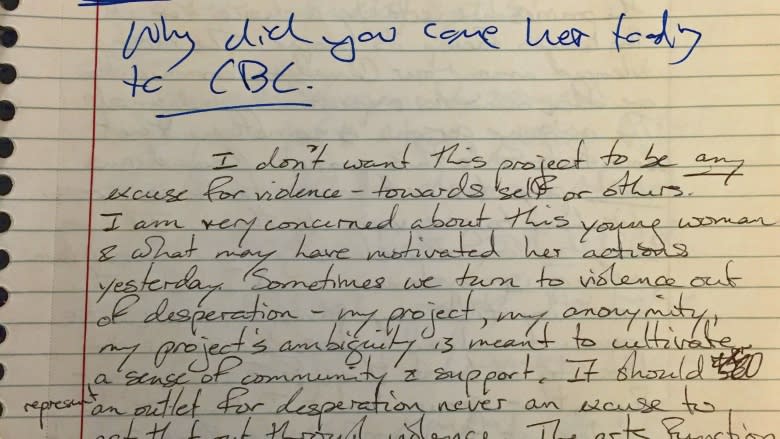 Why did you come her today
to CBC.
I don't want this project to be any
excuse for violence - towards self or others.
I am very concerned about this young woman
& what may have motivated her actions
yesterday. Sometimes we turn to violence out
of desperation - my project, my anonymity,
my project's ambiguity is meant to cultivate
a sense of community & support. It should
represent an outlet for desperation never an excuse to
act that out through violence. The arts function